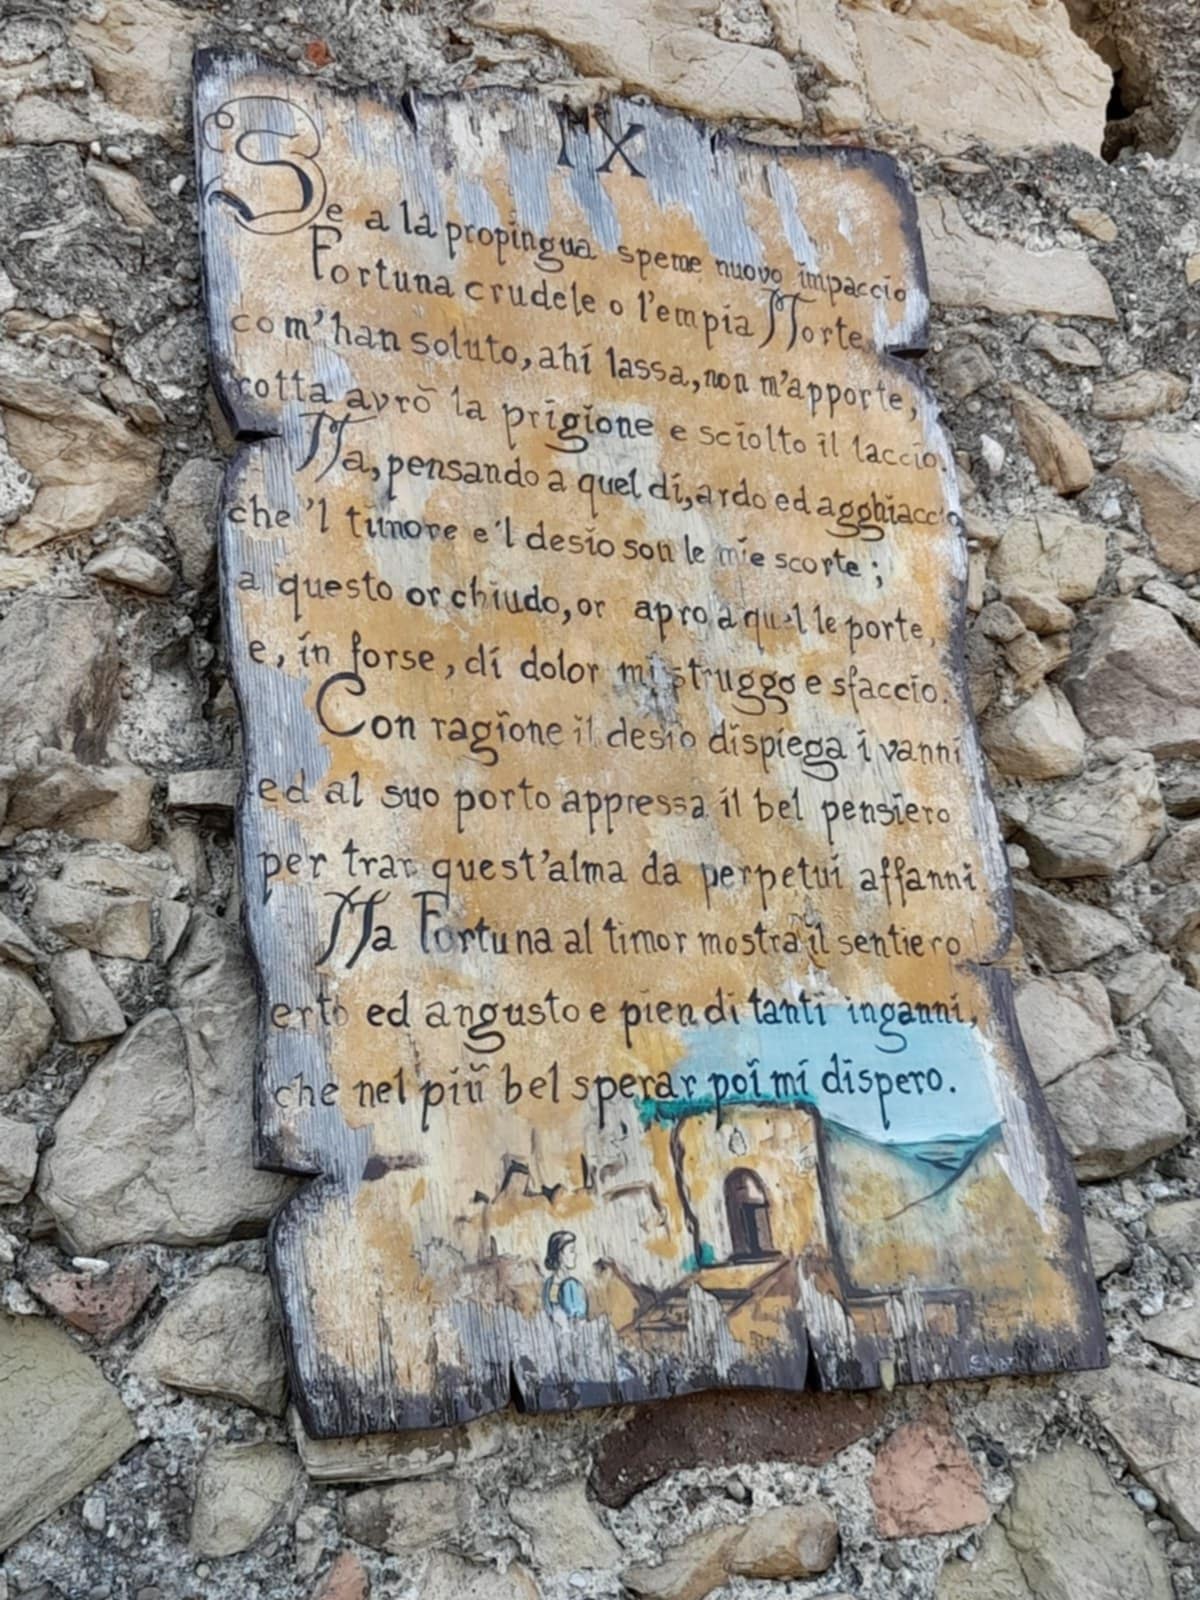 IX
Se a la propingua speme nuovo impaccio
Fortuna crudele o l'empia Morte,
com'han soluto, ahí lassa, non m'apporte,
rotta avrò la prigione e sciolto il laccio.
Ma, pensando a quel dí, ardo ed agghiaccio
che 'l timore e 'l desio son le mie scorte;
a questo or chiudo, or apro a quel le porte,
e, in forse, di dolor mi struggo e sfaccio.
Con ragione il desio dispiega i vanni
ed al suo porto appressa il bel pensiero
per trar quest'alma da perpetui affanni.
Ma Fortuna al timor mostra il sentiero
erto ed angusto e pien di tanti inganni,
che nel più bel sperar poi mi dispero.